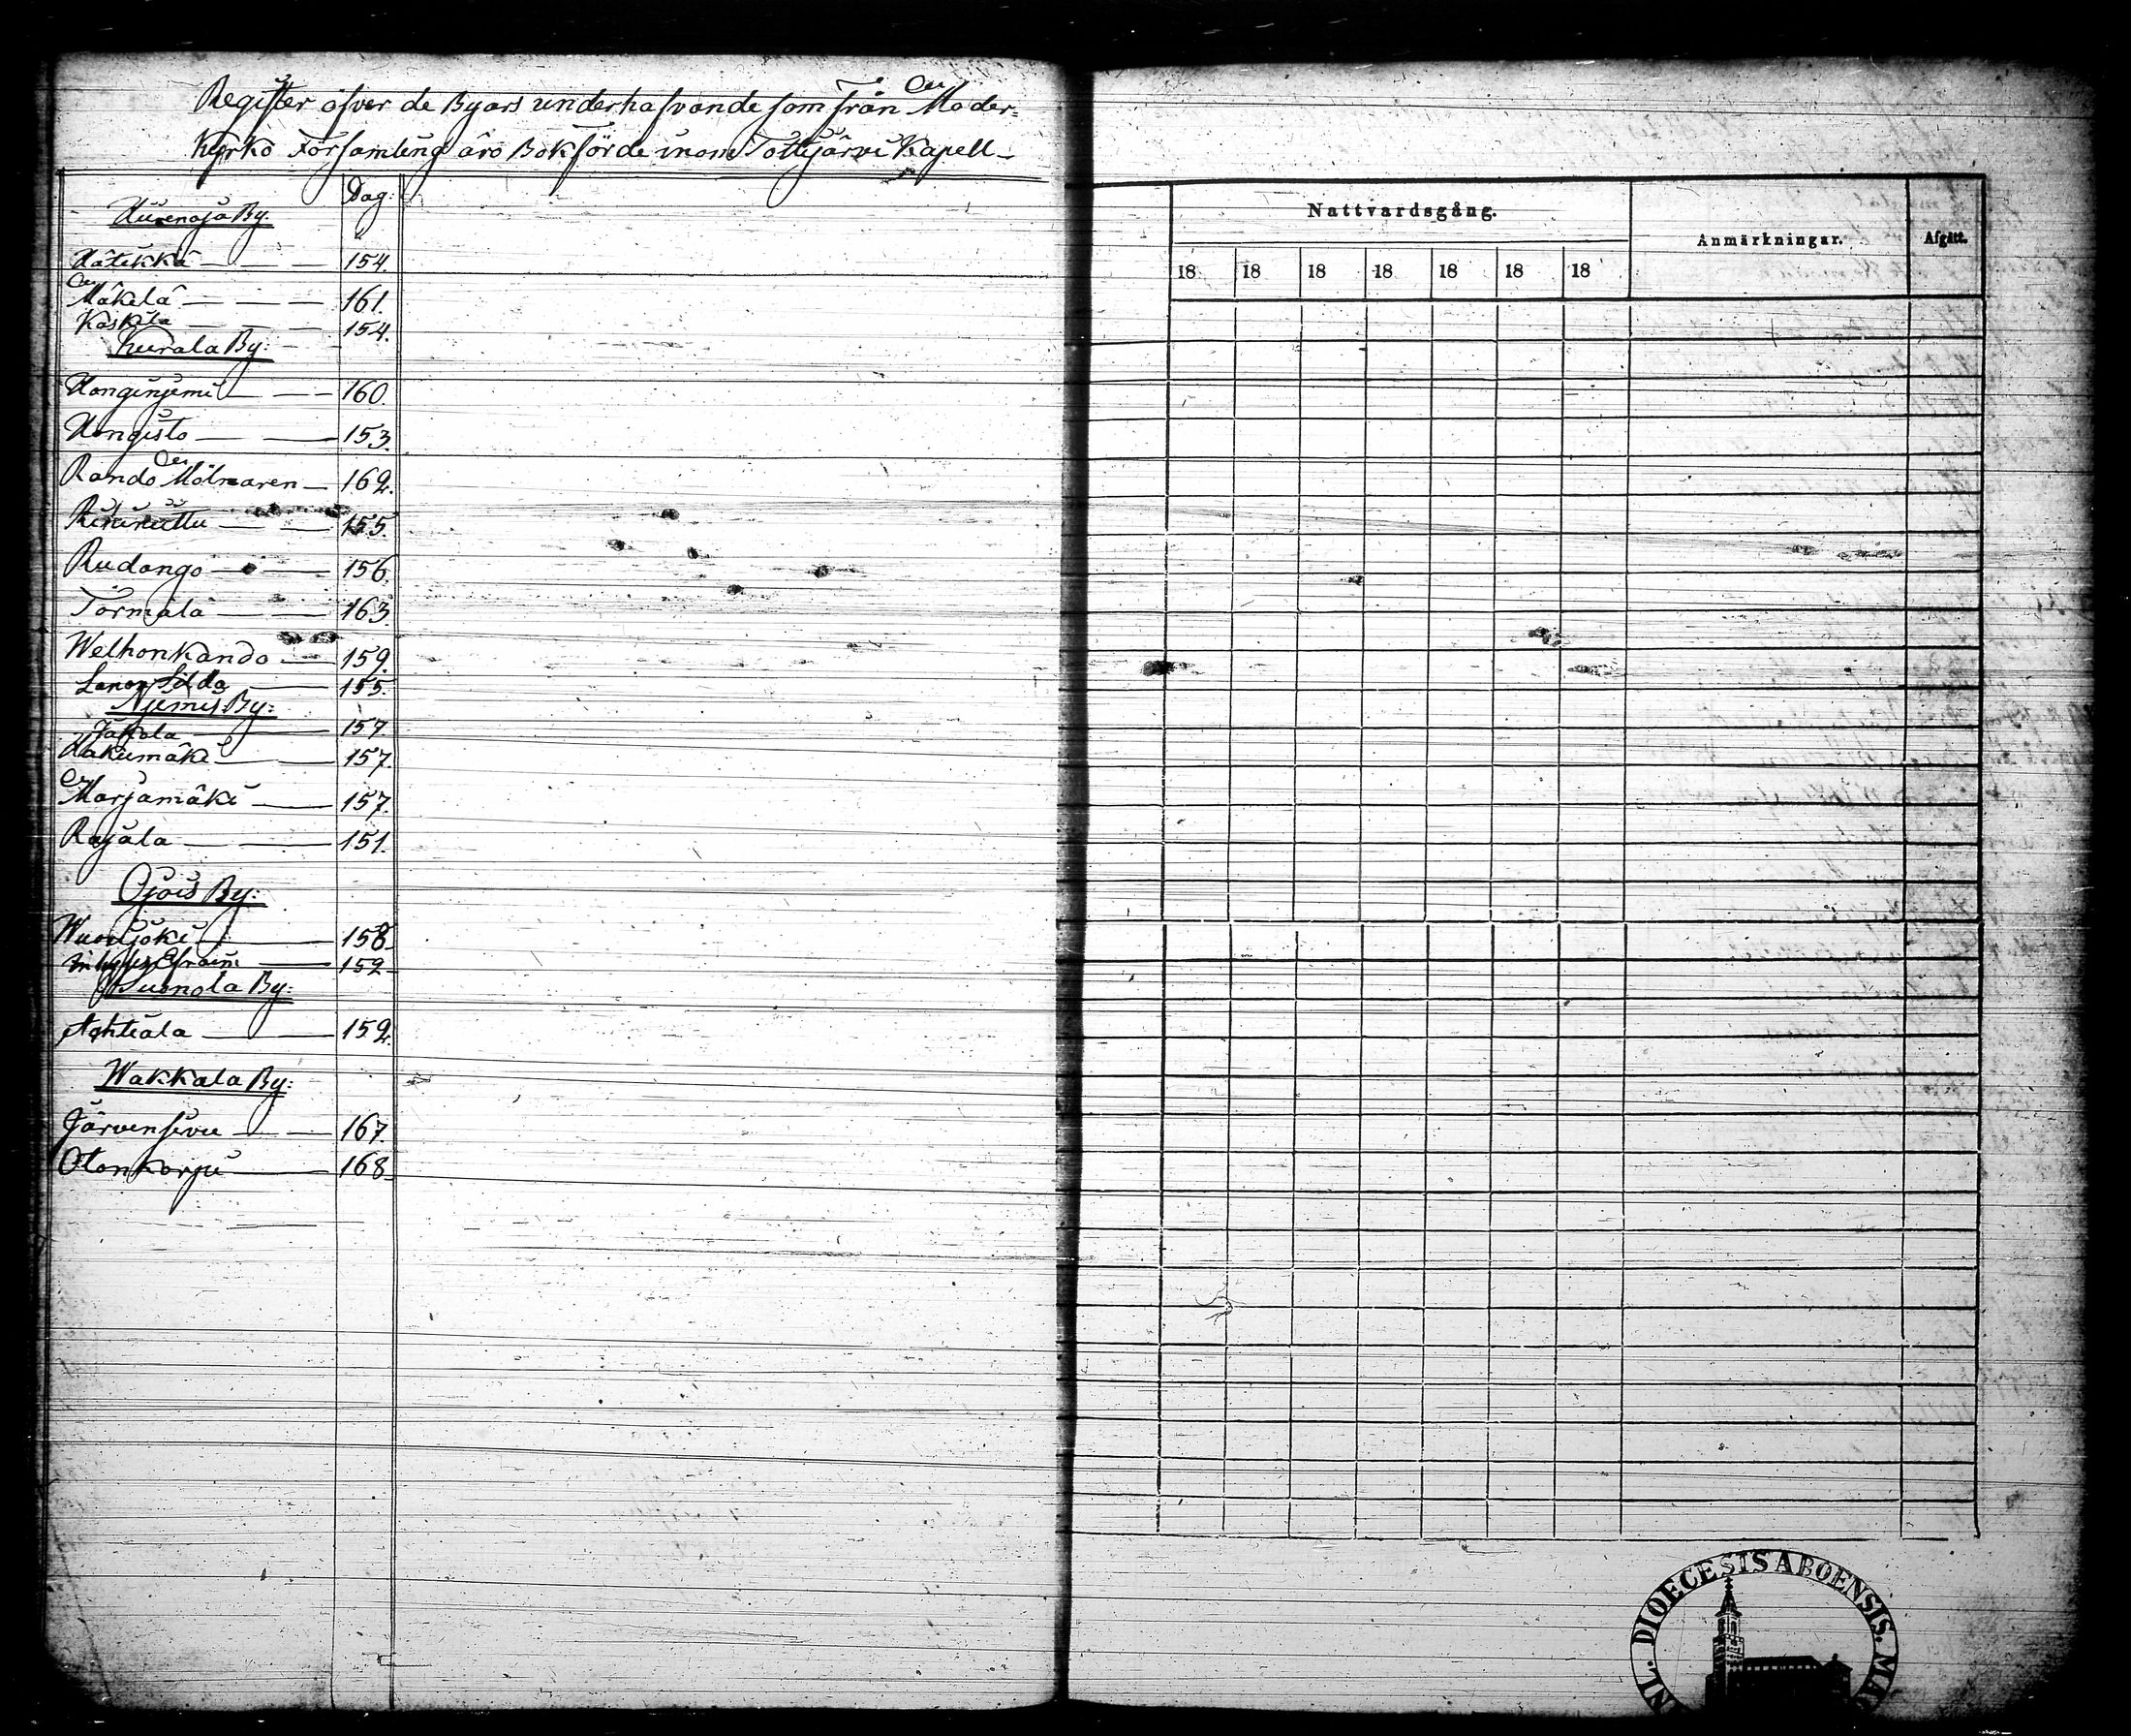 Register öfver de Byars underhafvande som från Moder-
Kyrko Församling äro Bokförde inom Tottijärvi Kapell
Pag:
Hurenoja By:
Hätikkä 154.
Mäkelä 161.
Koskela 154.
Kurala By:
Honginjemi 160
Hongisto 153.
Rando Mölnaren 162.
155.
Rudango 156
Törmälä 163
Welhonkando 159.
155.
Njemis By:
Jakola 157
Hakumäki 157.
Marjamäki 157.
Rajala 151.
Ojois By:
Wuorijoki 158
Efraim 152
Suonola By:
Ahtiala 152.
Wakkala By:
Järvensivu 167.
Otonkorpi 168
Nattvardsgång.
Anmärkningar.
Afgått.
18 18 18 18 18 18 18
DIOECESIS ABOENSIS.